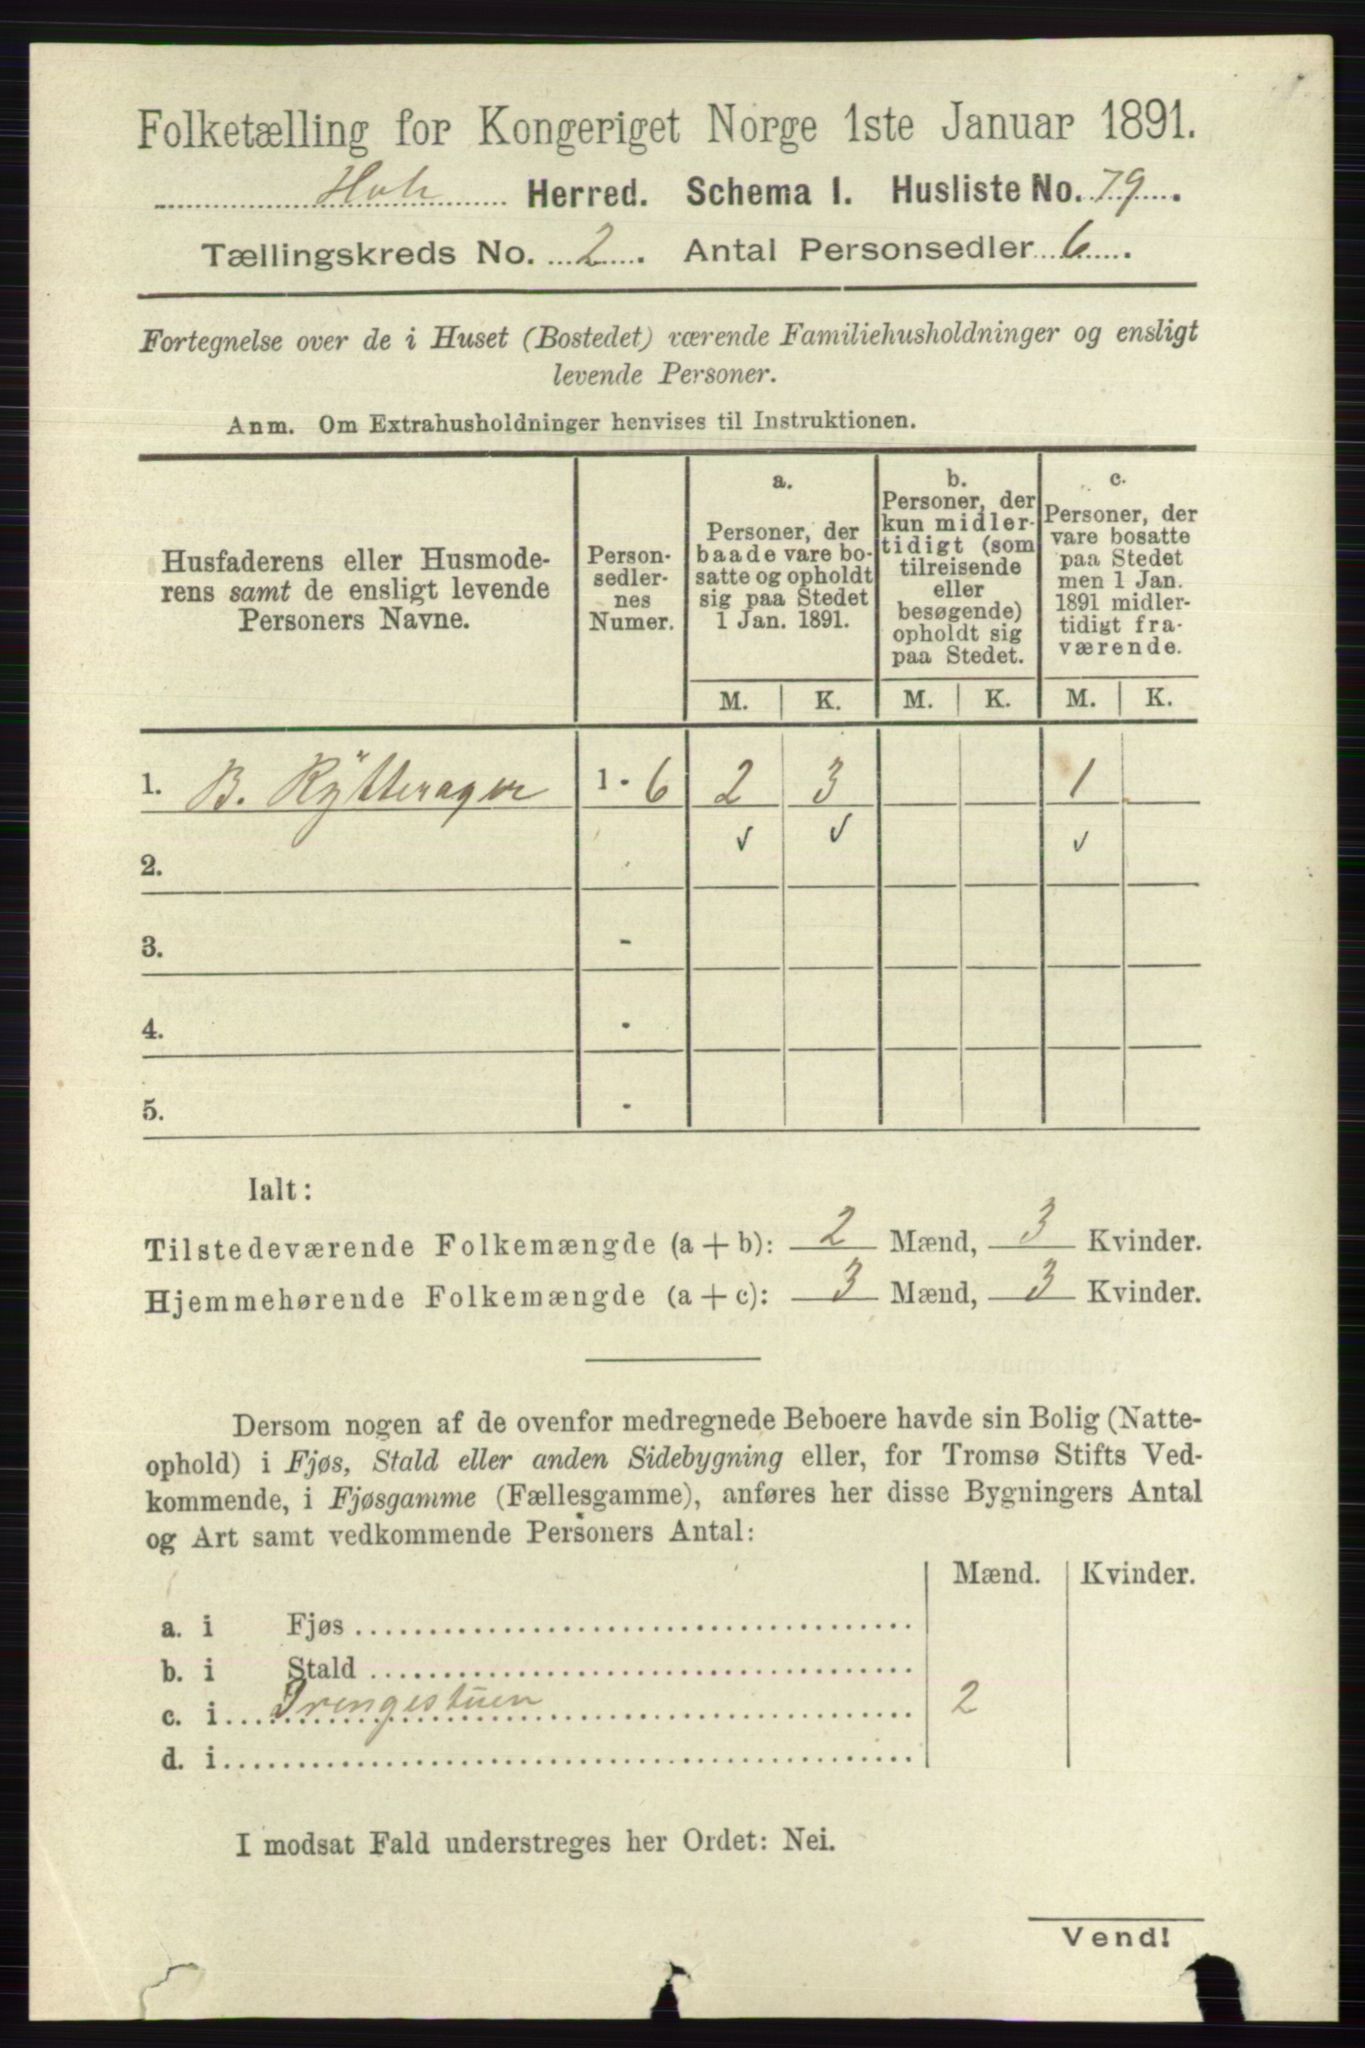 Folketælling for Kongeriget Norge 1ste Januar 1891.
Hole Herred. Schema 1. Husliste No. 79.
Tællingskreds No. 2. Antal Personsedler 6.
Fortegnelse over de i Huset (Bostedet) værende Familiehusholdninger og ensligt
levende Personer.
Anm. Om Extrahusholdninger henvises til Instruktionen.
Husfaderens eller Husmode-
rens samt de ensligt levende
Personers Navne.
Person-
sedler-
nes
Numer.
a.
Personer, der
baade vare bo-
satte og opholdt
sig paa Stedet
1 Jan. 1891.
b.
Personer, der
kun midler-
tidigt (som
tilreisende
eller
besøgende)
opholdt sig
paa Stedet.
c.
Personer, der
vare bosatte
paa Stedet
men 1 Jan.
1891 midler-
tidigt fra-
værende.
M. K. M. K. M. K.
1. B. Rytterager 1 - 6 2 3 1
2.
3. -
4. -
5. -
Ialt:
Tilstedeværende Folkemængde (a + b): 2 Mænd, 3 Kvinder.
Hjemmehørende Folkemængde (a + c): 3 Mænd, 3 Kvinder.
Dersom nogen af de ovenfor medregnede Beboere havde sin Bolig (Natte-
ophold) i Fjøs, Stald eller anden Sidebygning eller, for Tromsø Stifts Ved-
kommende, i Fjøsgamme (Fællesgamme), anføres her disse Bygningers Antal
og Art samt vedkommende Personers Antal:
Mænd. Kvinder.
a. i Fjøs
b. i Stald
c. i Drengestuen 2
d. i
I modsat Fald understreges her Ordet: Nei.
Vend!